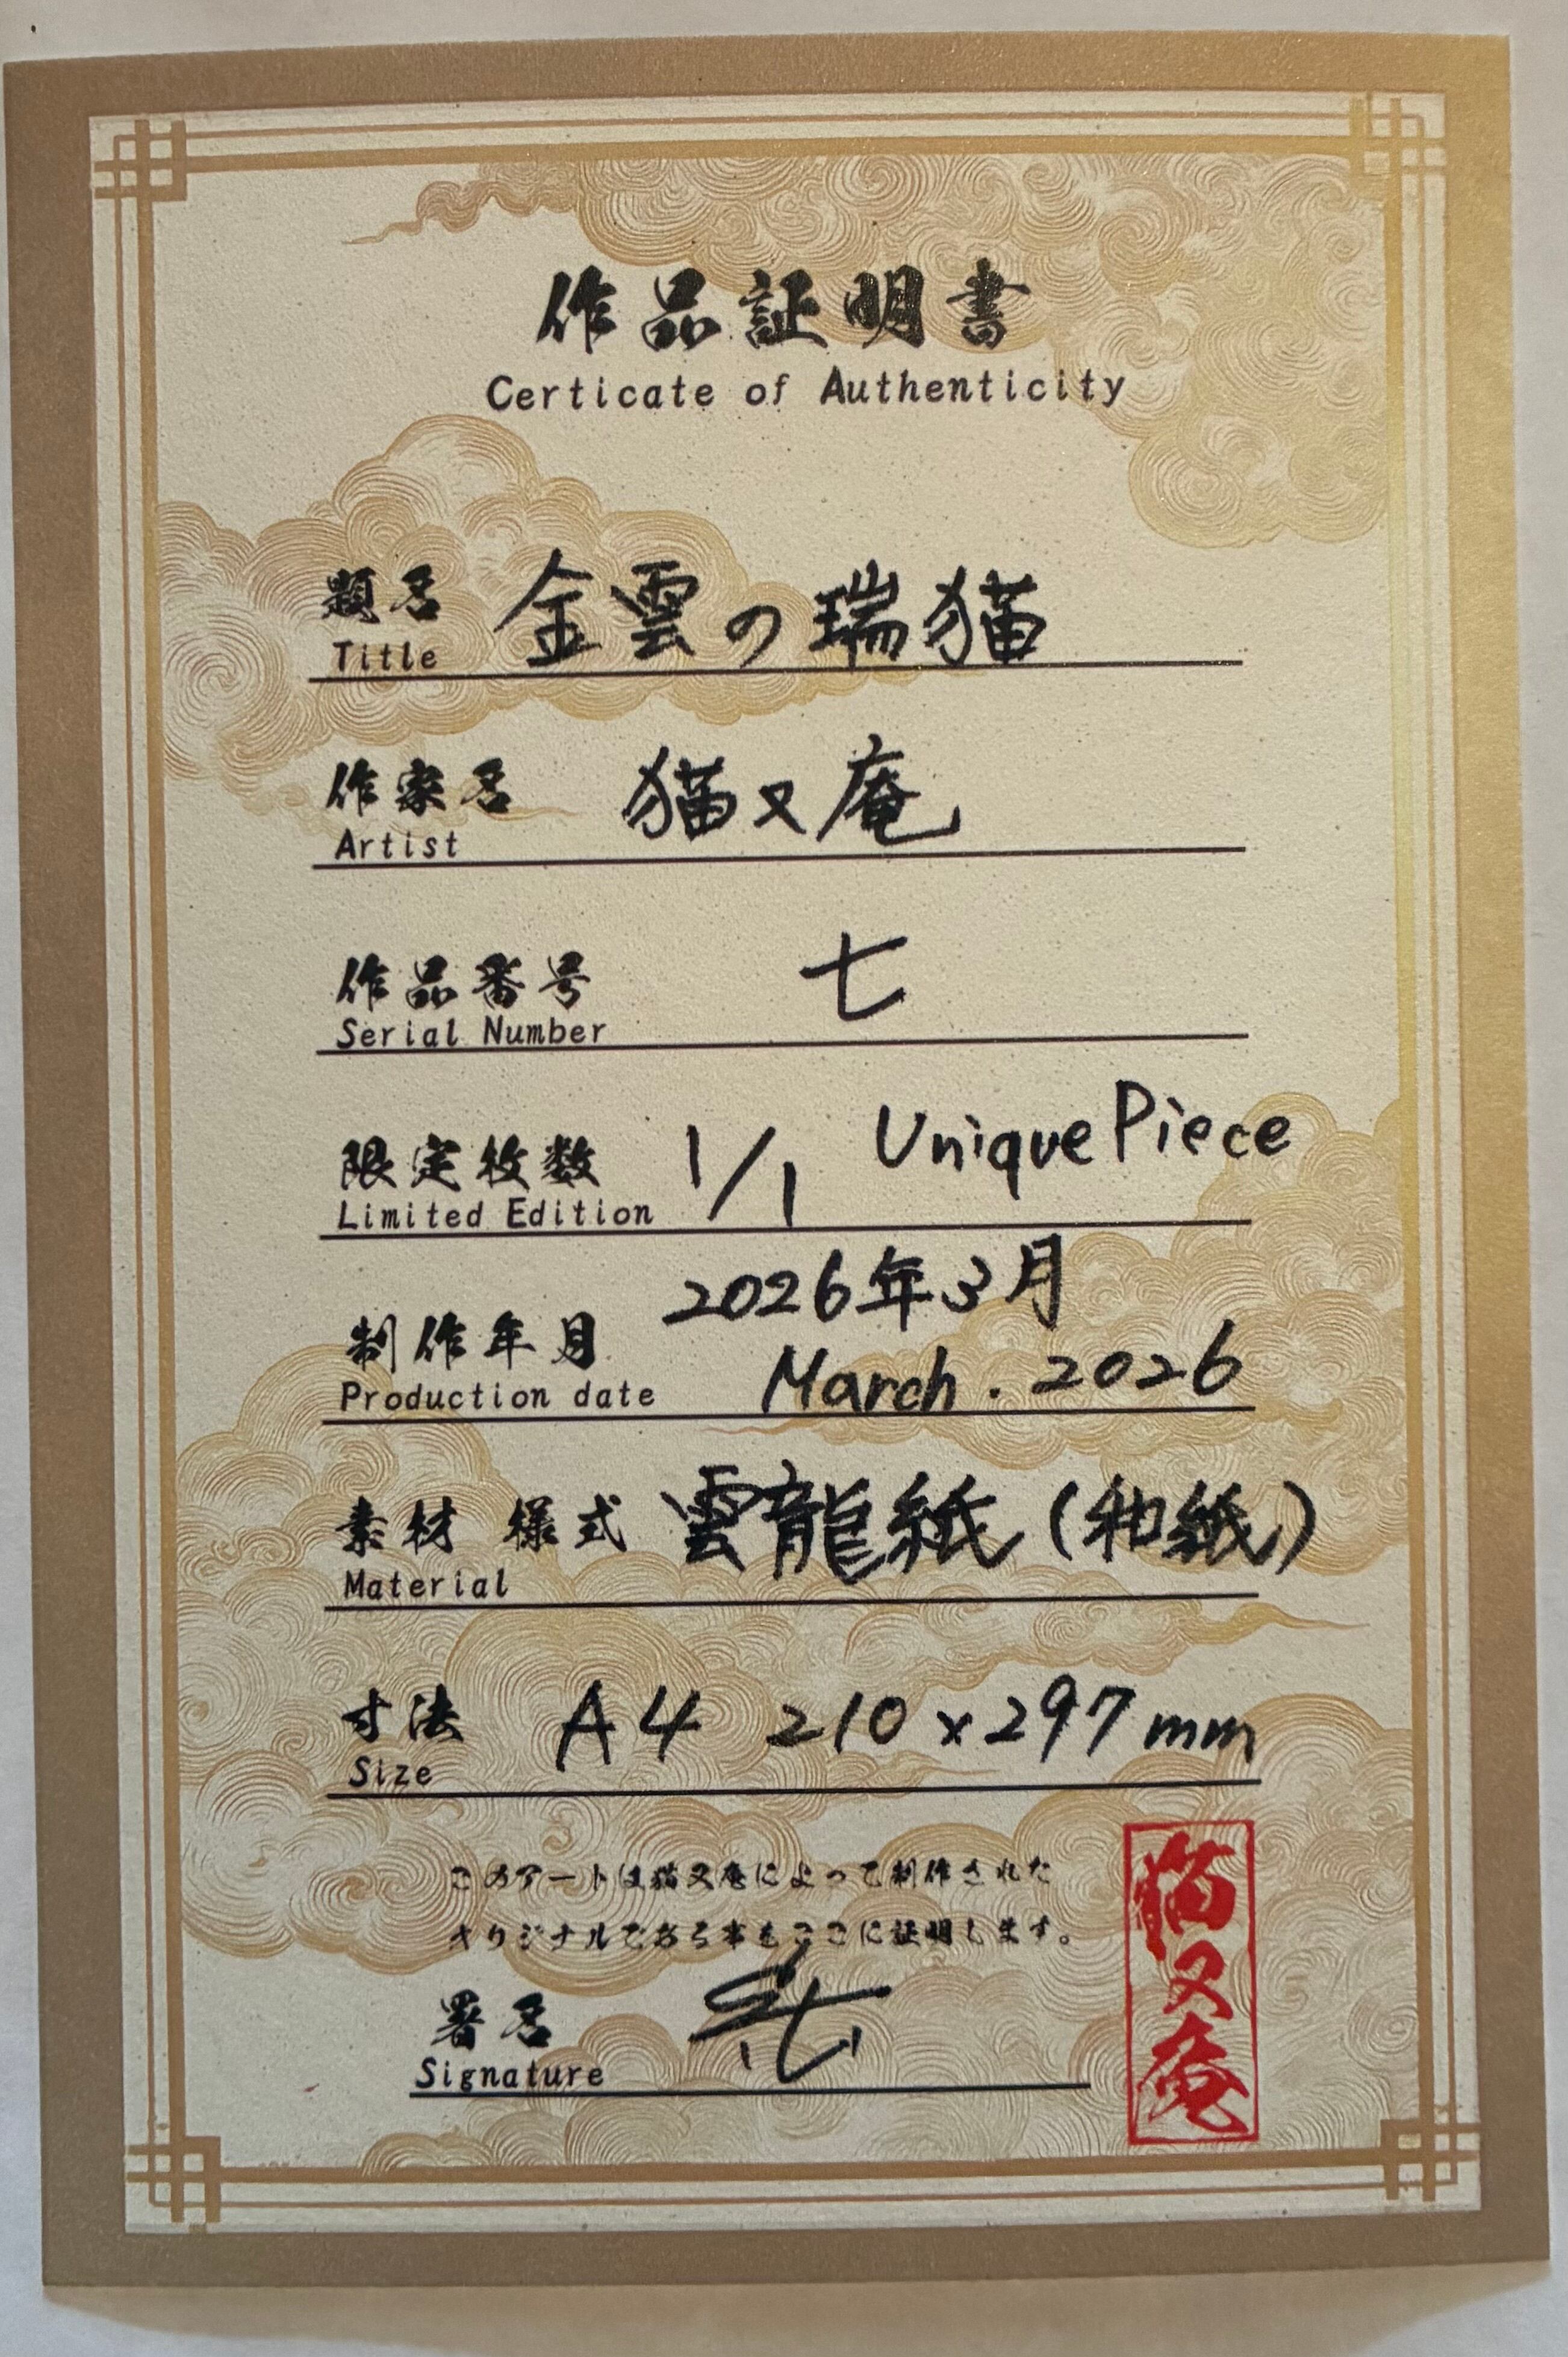 作品証明書
Certicate of Authenticity
題名 金雲の瑞猫
Title
作家名 猫又庵
Artist
作品番号 七
Serial Number
限定枚数 1/1 Unique Piece
Limited Edition
2026年3月
制作年月
Production date March. 2026
素材 様式 雲龍紙(和紙)
Material
寸法 A4 210×297mm
Size
このアートは猫又庵によって制作された
オリジナルである事をここに証明します。
署名
Signature
猫又庵